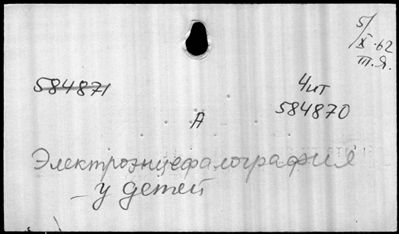 5/X-62
т.Я.
584871
Чит
584870
А
Электроэнцефалография
у детей